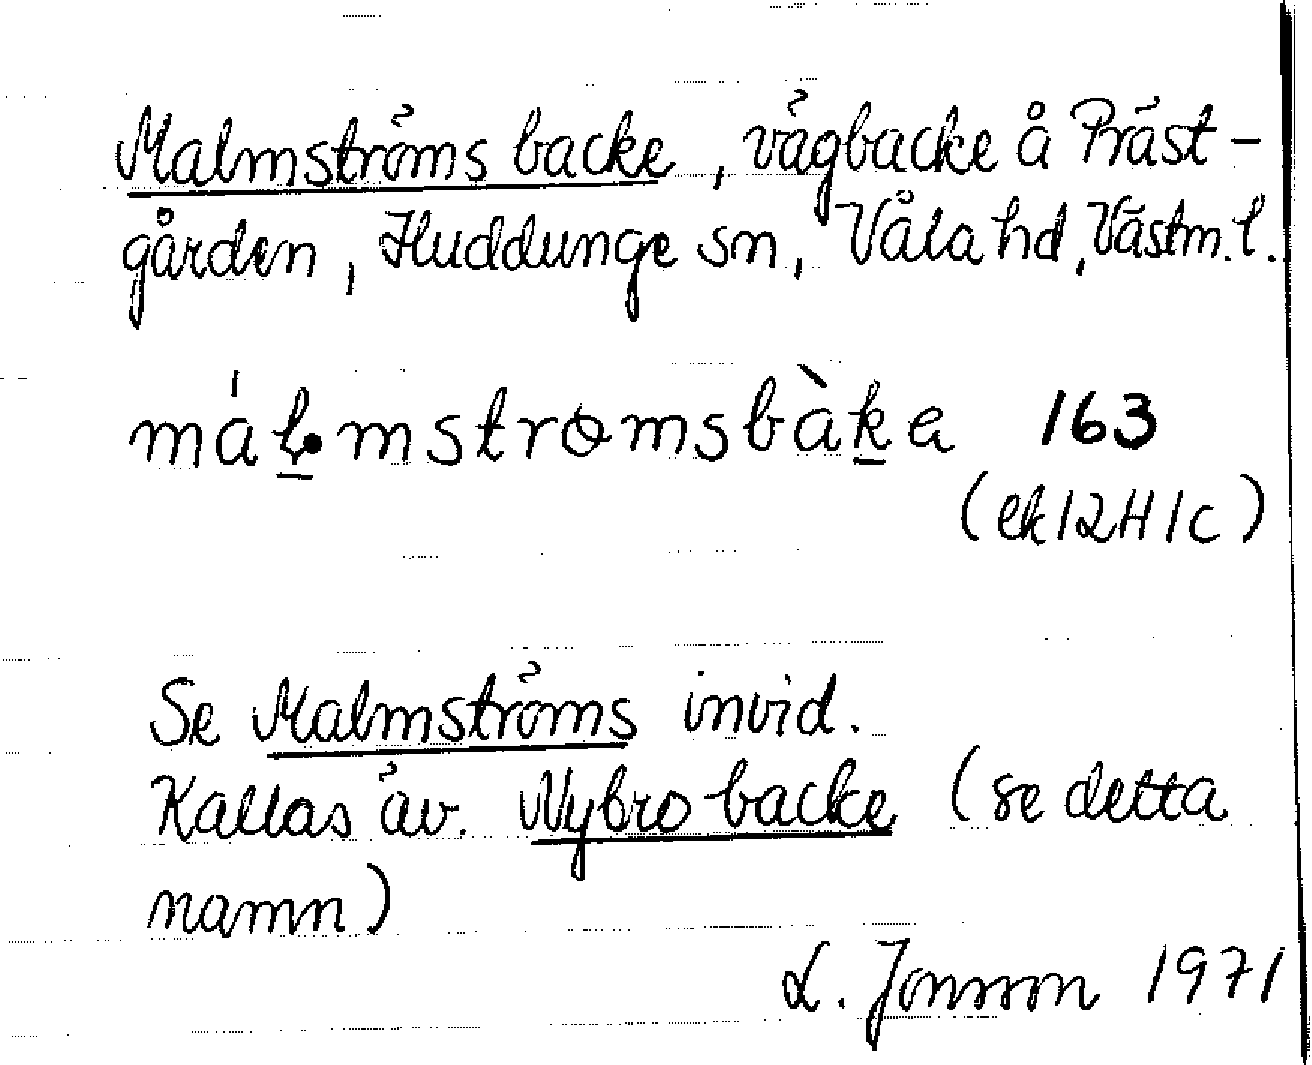 Malmströms backe, vägbacke å Präst-
gården, Huddunge sn, Våla hd, Västm. l.
máɫ̱•mstrɵmsbàḵa 163
(ek 12H1c)
Se Malmströms invid.
Kallas äv. Nybro backe (se detta
namn)
L. Jonsson 1971